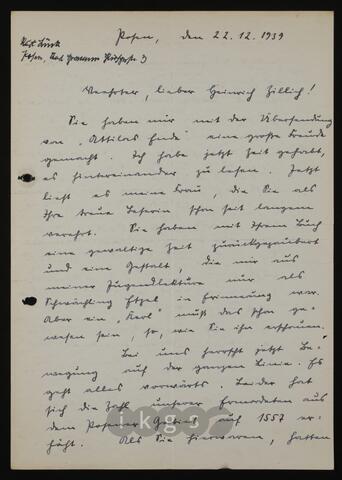 Posen, den 22.12.1939
Kurt Lück
Posen, Hermann
Verehrter, lieber Heinrich Zillich!
Sie haben mir mit der Übersendung
von "Attilas Ende" eine große Freude
gemacht. Ich habe jetzt Zeit gehabt,
es hintereinander zu lesen. Jetzt
liest es meine Frau, die Sie als
Ihre treue Leserin schon seit langem
verehrt. Sie haben mit Ihrem Buch
eine gewaltige Zeit zurückgezaubert
und eine Gestalt, die mir aus
meiner Jugendlektüre nur als
Schwächling Etzel in Erinnerung war.
Aber ein "Kerl" muß das schon ge-
wesen sein, so, wie Sie ihn erschauen.
Bei uns herrscht jetzt Be-
wegung auf der ganzen Linie. Es
geht alles vorwärts. Leider hat
sich die Zahl unserer Ermordeten aus
dem Posener Gebiet auf 1557 er-
höht. Als Sie hier waren, hatten
ikgs